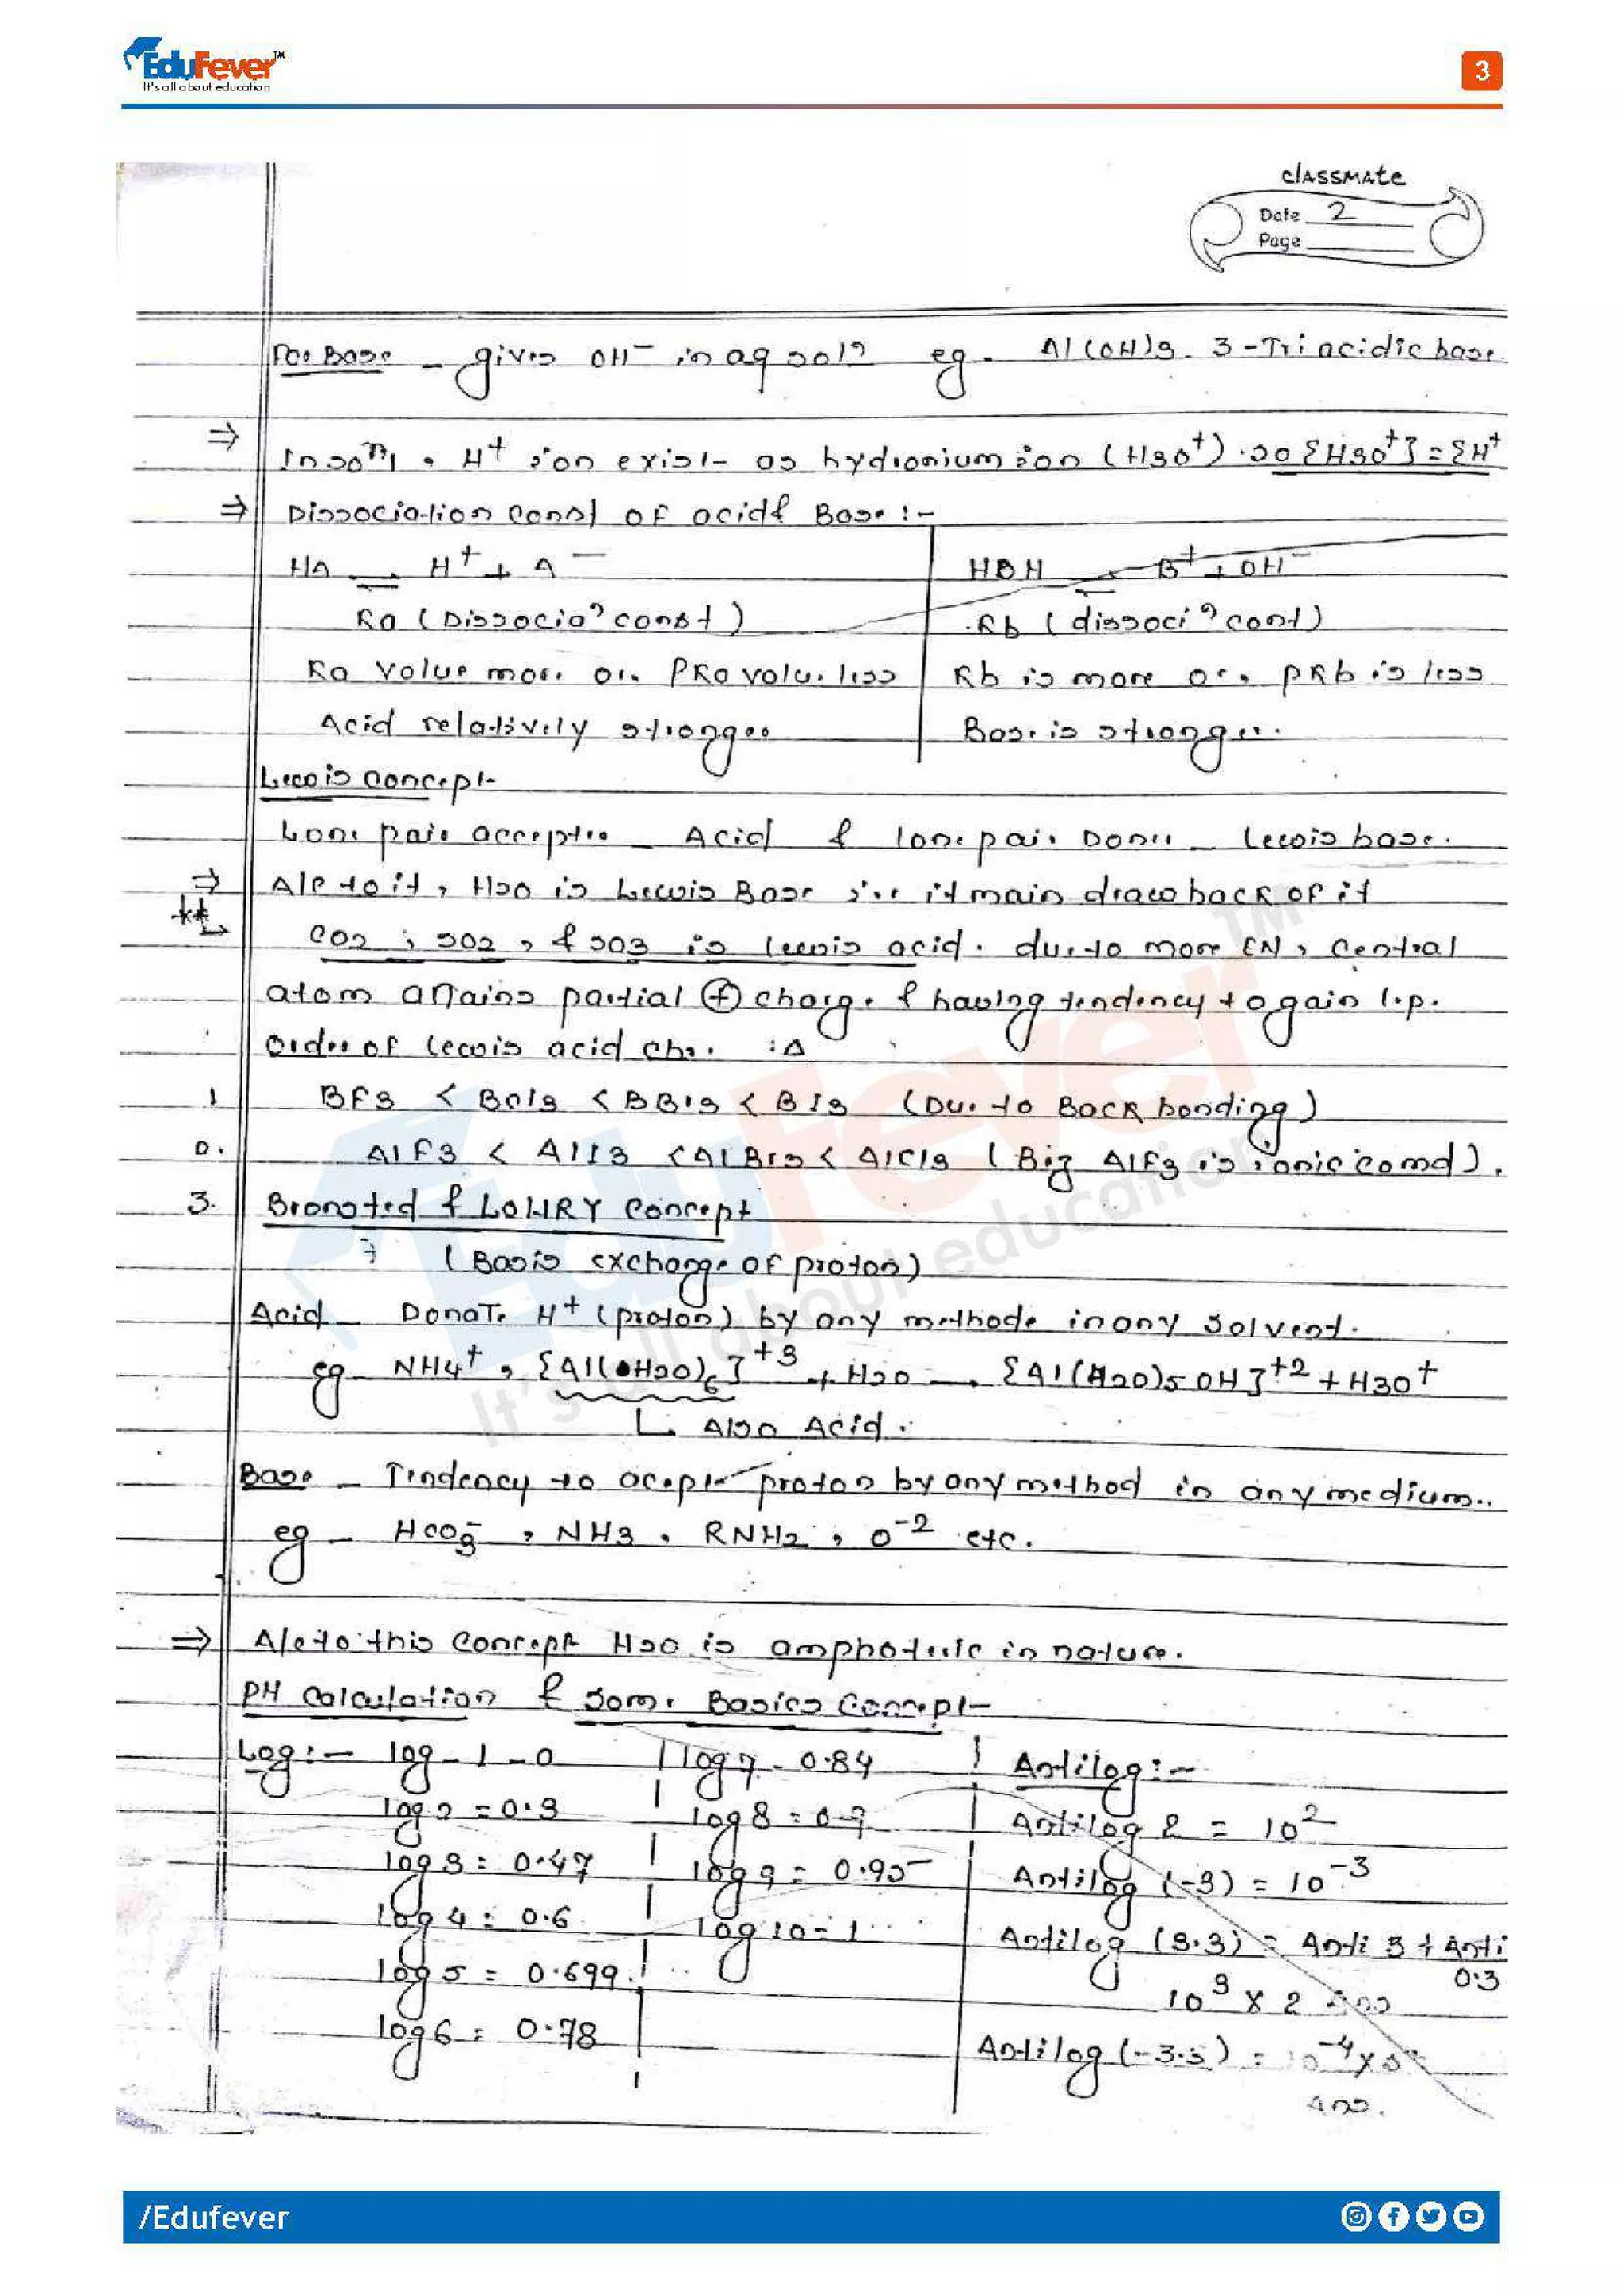 EduFever™
It's all about education
3
classmate
Date 2
Page
For Base - gives OH⁻ in aq solⁿ eg - Al(OH)3 - 3 - Tri acidic base
⇒ In solⁿ, H⁺ ion exist as hydronium ion (H3O⁺) . so [H3O⁺] = [H⁺
⇒ Dissociation const of acid & Base :-
HA ⇌ H⁺ + A⁻
Ka (Dissociaⁿ const)
Ka value more or, PKa value less
Acid relatively stronger
⇌ B⁺ + OH⁻
Kb (dissociⁿ cont)
Kb is more or, pKb is less
Base is stronger.
Lewis concept
Lone pair acceptor - Acid & lone pair Doner - Lewis base.
⇒ A/c to it, H2O is Lewis Base i.e it main draw back of it
** CO2, SO2, & SO3 is lewis acid. due to more EN, Central
atom attains partial ⊕ charge & having tendency to gain l.p.
Order of lewis acid chr. :Δ
1 BF3 < BCl3 < BBr3 < BI3 (Due to Back bonding)
AlF3 < AlI3 < AlBr3 < AlCl3 (Bcz AlF3 is ionic comd).
3. Bronsted & LOWRY Concept
(Basis exchange of proton)
Acid - Donate H⁺ (proton) by any methode in any solvent.
eg - NH4⁺, [Al(H2O)6]⁺³ + H2O → [Al(H2O)5 OH]⁺² + H3O⁺
Also Acid.
Base - Tendency to acept proton by any method in any medium..
eg - HCO3⁻, NH3, RNH2, O⁻² etc.
⇒ A/c to this Concept H2O is amphoteric in nature.
PH Calculation & Some Basics Concept
Log :- log - 1 - 0
log 2 = 0.3
log 3 = 0.47
log 4 = 0.6
log 5 = 0.699
log 6 = 0.78
log 7 - 0.84
log 8 = 0.9
log 9 = 0.95
log 10 = 1
Antilog :-
Antilog 2 = 10²
Antilog (-3) = 10⁻³
Antilog (3.3) = Anti 3 + Anti
0.3
10³ X 2 Ans
Antilog (-3.3) = 10⁻⁴ X 5
Ans.
/Edufever